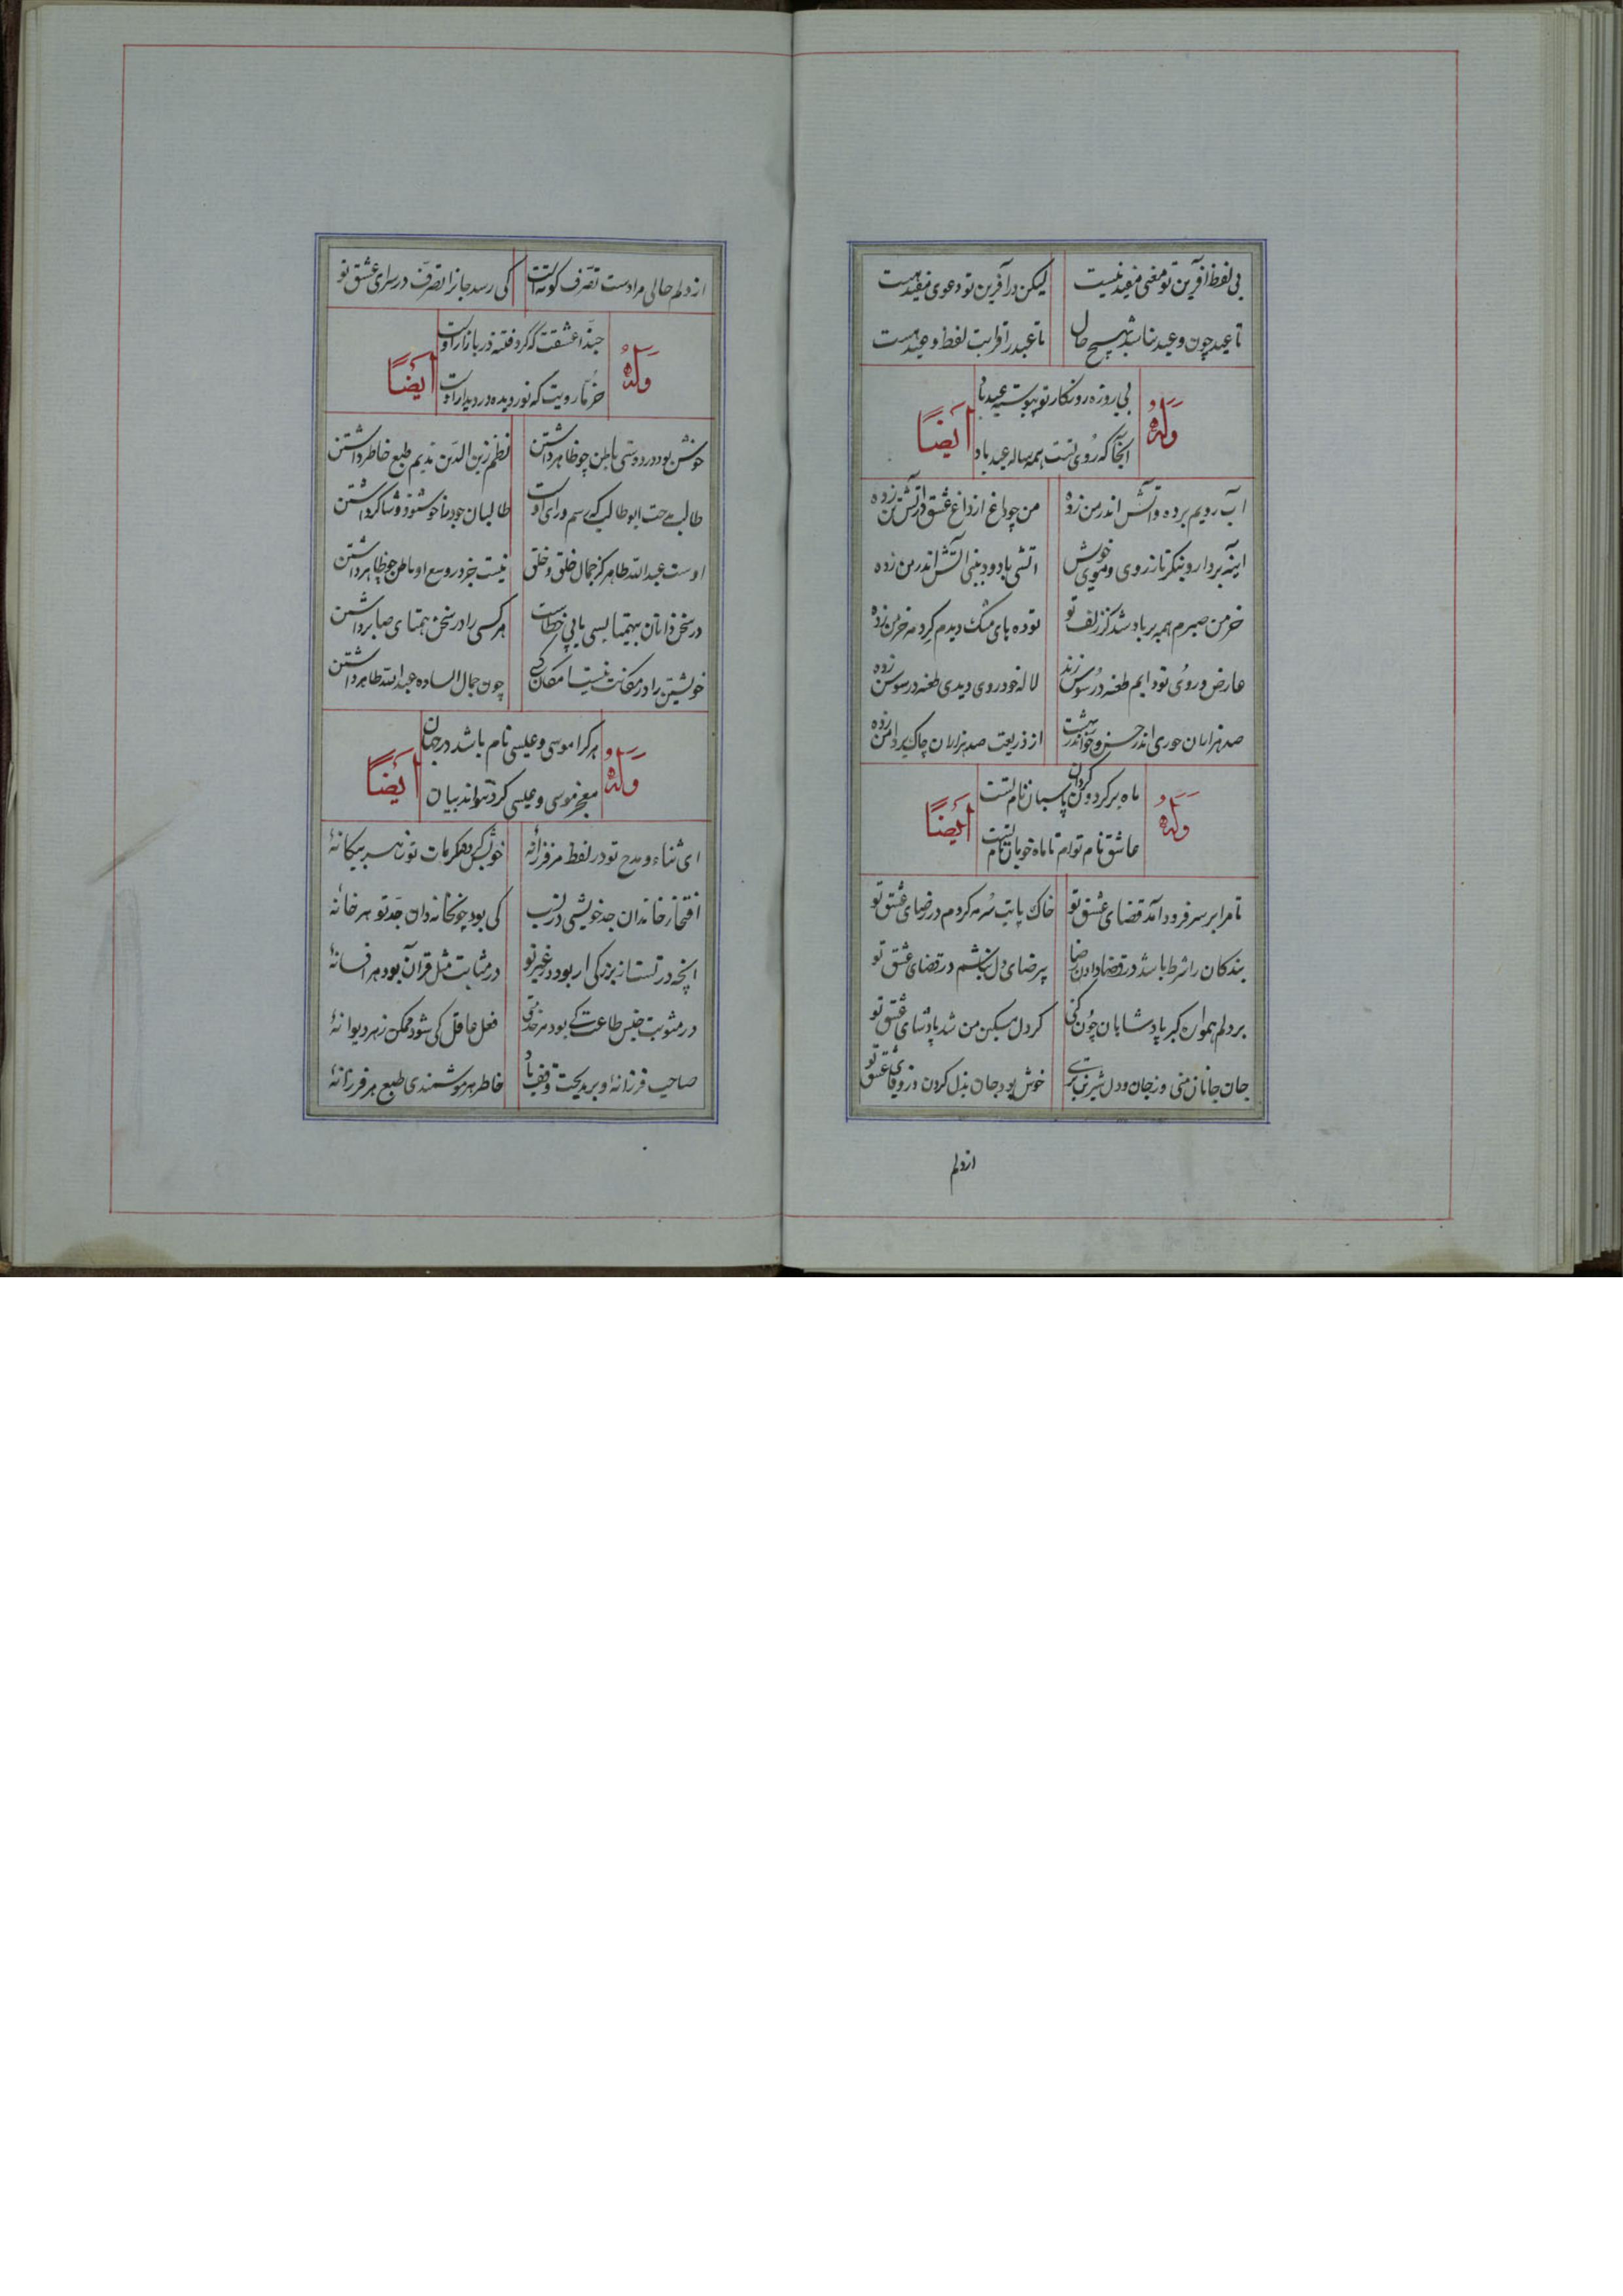 بی لفظ آفرین تو معنی مفید نیست لیکن در آفرین تو دعوی مفید هست
تا عید چون وعید نباشد بهیچ حال تا عید را قرابت لفظ وعید هست
وله بی روزه روزکار تو پیوسته عید باد ایضا
آنجا که روی تست همه ساله عید باد
آب رویم برده و آتش اندر من زده من چراغ از داغ عشق در آتش تن زده
اینه بردار و بنکر تا ز روی و موی خوش آتشی با دود بینی آتش اندر من زده
خرمن صبرم همه بر باد شد کز زلف تو توده های مشک دیدم کرد مه خرمن زده
عارض و روی تو دایم طعنه در سوسن زند لاله خودروی دیدی طعنه در سوسن زده
صد هزاران حوری اندر حسن و خو اندر بهشت از صد هزاران چاک بر دامن زده
وله ماه بر کردون کردان پاسبان نام تست ایضا
عاشق نام توام تا ماه خوبان نام تست
تا مرا بر سر فرود آمد قضای عشق تو خاک پایت سرمه کردم در رضای عشق تو
بندکان را شرط باشد در قضا دادن رضا پر رضای دل نباشم در قضای عشق تو
بر دلم همواره کبر پادشاهان چون کنی کر دل مسکین من شد پادشای عشق تو
جان جانان منی وز جان و دل شیرین تری خوش بود جان بذل کردن در وفای عشق تو
از دلم
از دلم حالی مرا دست تصرف کوته است کی رسد جانرا تصرف در سرای عشق تو
وله حبذا عشقت که کرد فتنه در بازار اوست ایضا
خرما رویت که نور دیده در دیدار اوست
خوش بود در دوستی باطن چو ظاهر داشتن نظم زین الدین ندیم طبع خاطر داشتن
طالب مدحت ابو طالب که رسم و رای اوست طالبان جود را خوشنود و شاکر داشتن
اوست عبدالله طاهر کز جمال خلق و خلق نیست جز در وسع او باطن چو ظاهر داشتن
در سخن دانان بهمتا بسی یابی خطاست هر کسی را در سخن همتای صابر داشتن
خویشتن را در مکانت نیست امکان کسی چون جمال الساده عبدالله طاهر داشتن
وله هر کرا موسی و عیسی نام باشد در جهان ایضا
معجز موسی و عیسی کرد نتواند بیان
ای ثناء و مدح تو در لفظ هر فرزانه خویش کرده مکرمات تو ز هر بیکانه
افتخار خاندان جد خویشی در نسب کی بود چون خانه دان جد تو هر خانه
آنچه در تست از بزرکی ار بود در غیر تو در مثابت مثل قرآن بود هر افسانه
در مثوبت جنس طاعت کی بود هر خدمتی فعل عاقل کی شود ممکن ز هر دیوانه
صاحب فرزانه و بر مدحت وقف باد خاطر هر هوشمندی طبع هر فرزانه